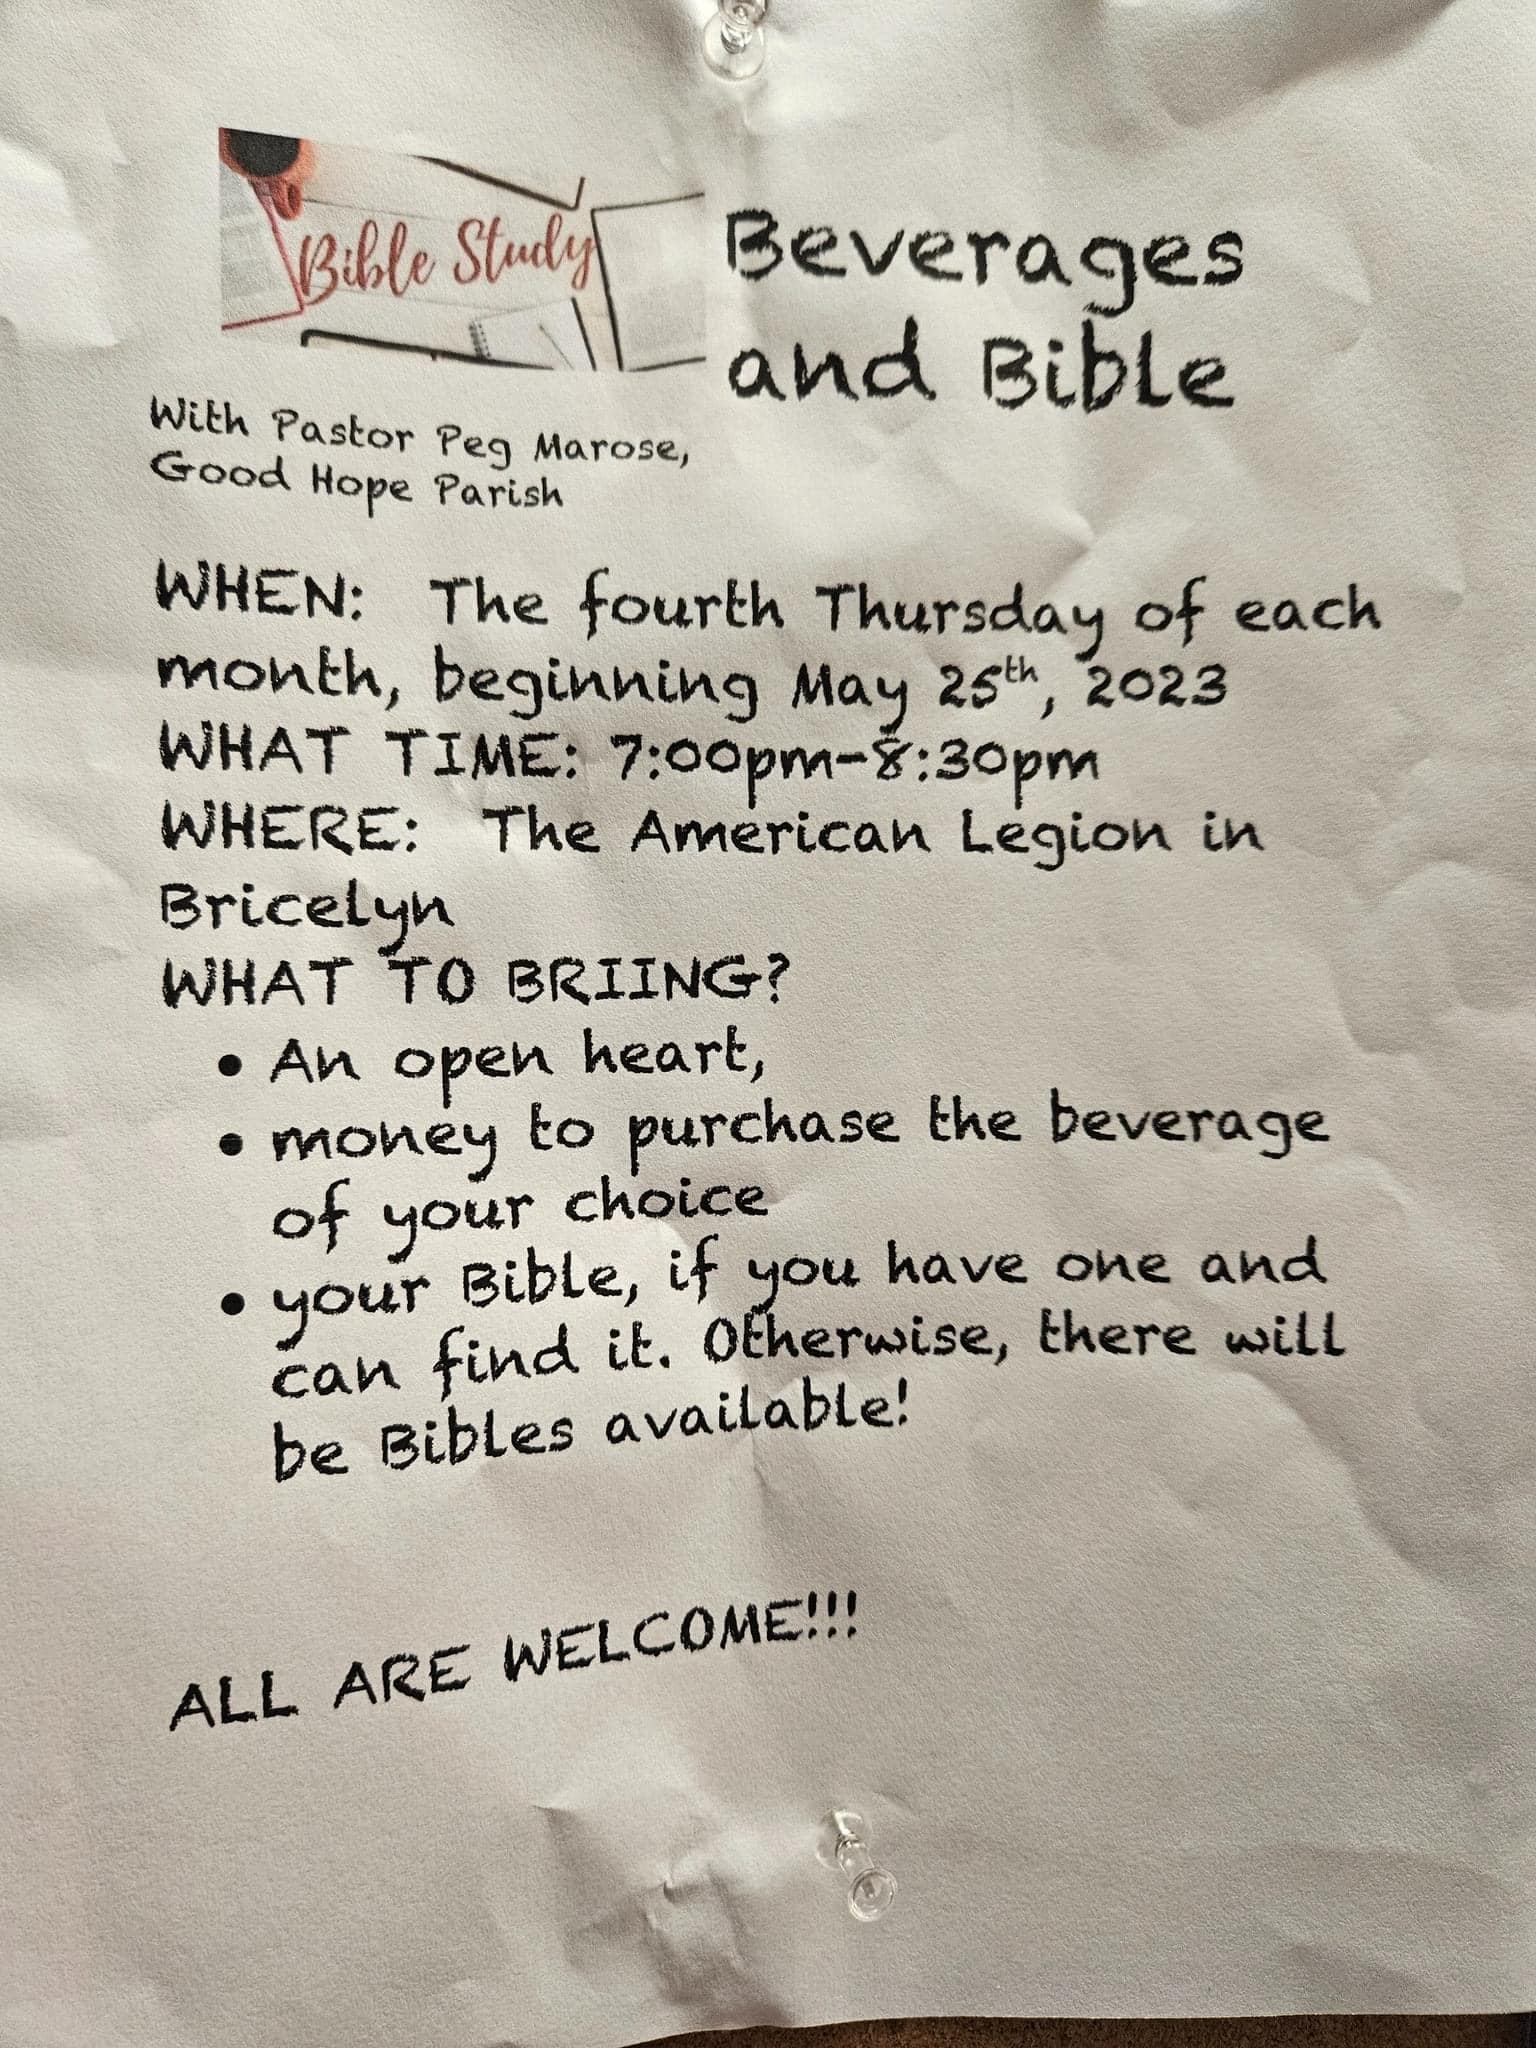 Bible Study
Beverages
and Bible
With Pastor Peg Marose,
Good Hope Parish
WHEN: The fourth Thursday of each
month, beginning May 25th, 2023
WHAT TIME: 7:00pm-8:30pm
WHERE: The American Legion in
Bricelyn
WHAT TO BRIING?
• An open heart,
• money to purchase the beverage
of your choice
• your Bible, if you have one and
can find it. Otherwise, there will
be Bibles available!
ALL ARE WELCOME!!!